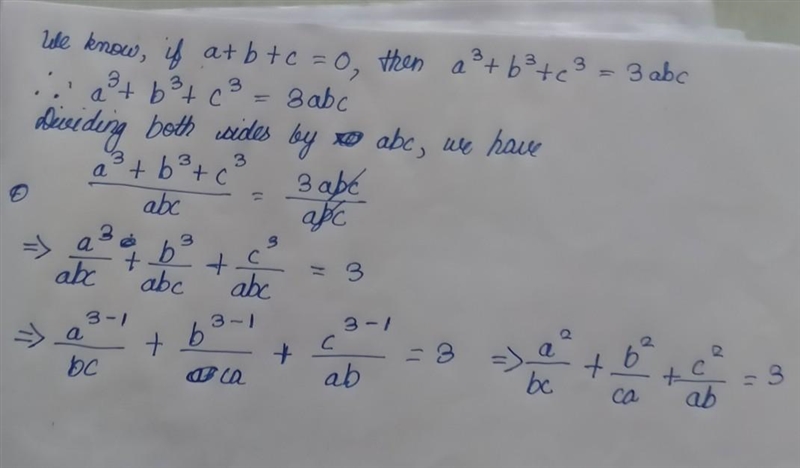 We know, if a+b+c = 0, then a³+b³+c³ = 3abc
∴ a³+ b³+ c³ = 3abc
Dividing both sides by abc, we have
(a³+b³+c³)/abc = 3abc/abc
⇒ a³/abc + b³/abc + c³/abc = 3
⇒ a³⁻¹/bc + b³⁻¹/ca + c³⁻¹/ab = 3 ⇒ a²/bc + b²/ca + c²/ab = 3